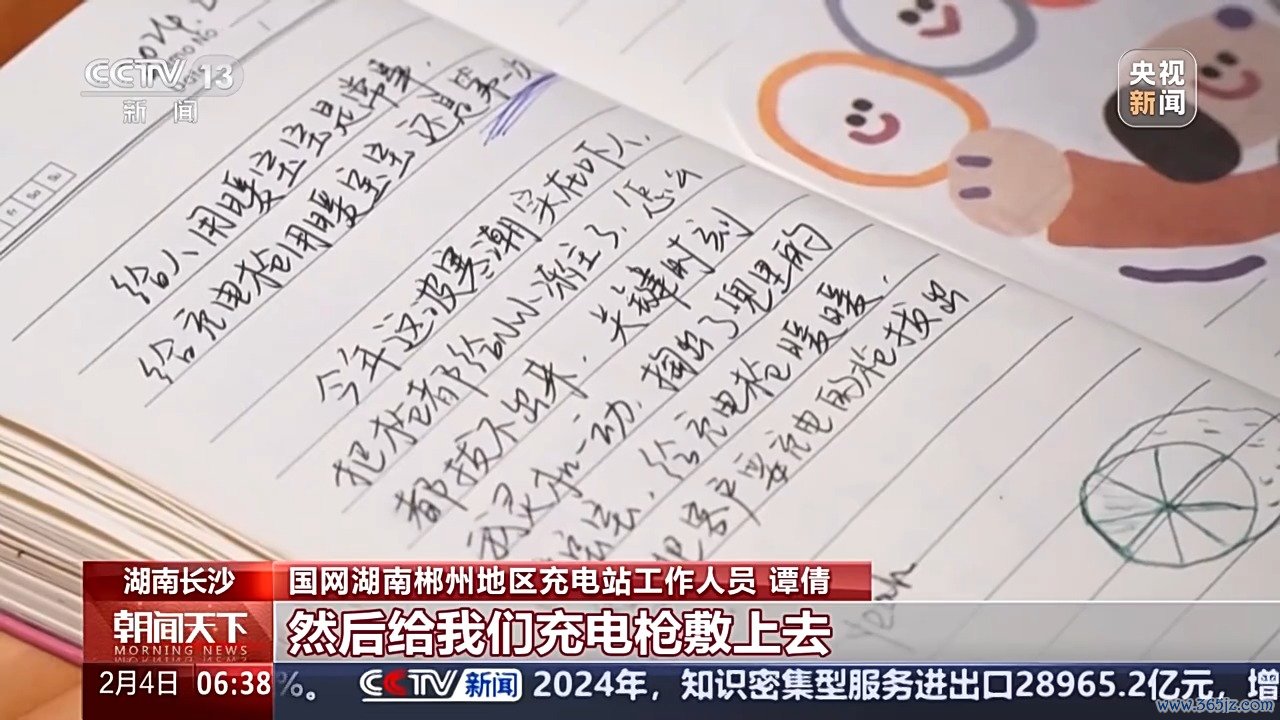 CCTV 13
新闻
央视
新闻
给人用暖宝宝是常事,
给充电枪用暖宝宝还是第一次
今年这波寒潮实在吓人,
把枪都给冰冻住了,怎么
都拔不出来,关键时刻
我灵机一动,掏出了兜里的
宝宝,给充电枪暖暖,
把客户要充电的枪拔出
Yeah
湖南长沙
国网湖南郴州地区充电站工作人员 谭倩
朝闻天下
MORNING NEWS
然后给我们充电枪敷上去
2月4日 06:38
%。 CCTV 新闻 2024年,知识密集型服务进出口28965.2亿元,增
www.365jz.com